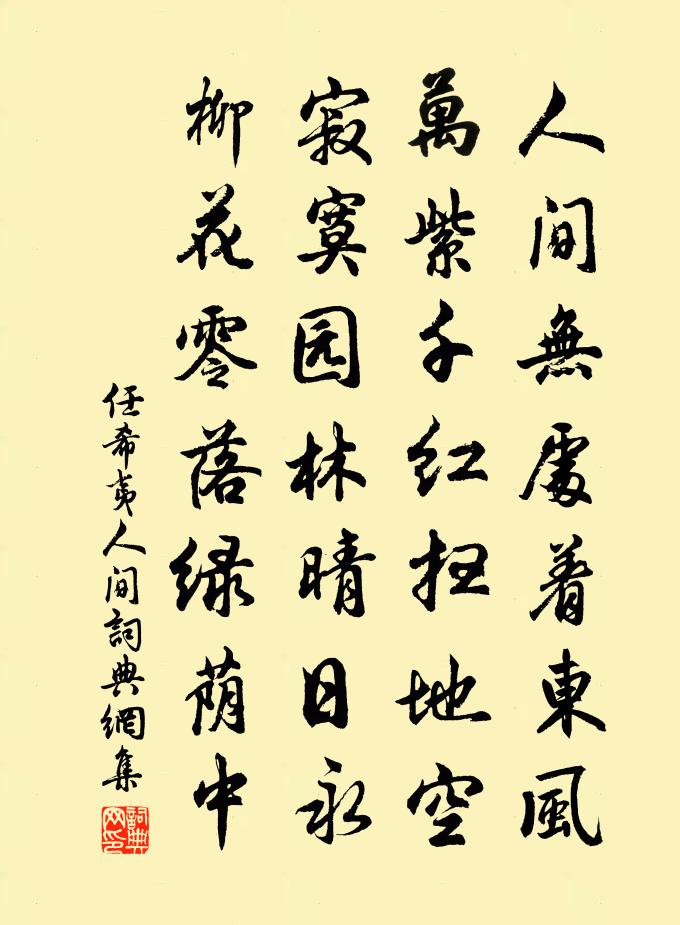 人間無處着東風
萬紫千红扫地空
寂寞园林晴日永
柳花零落绿荫中
任希夷人间詞典網集
詞典
网印